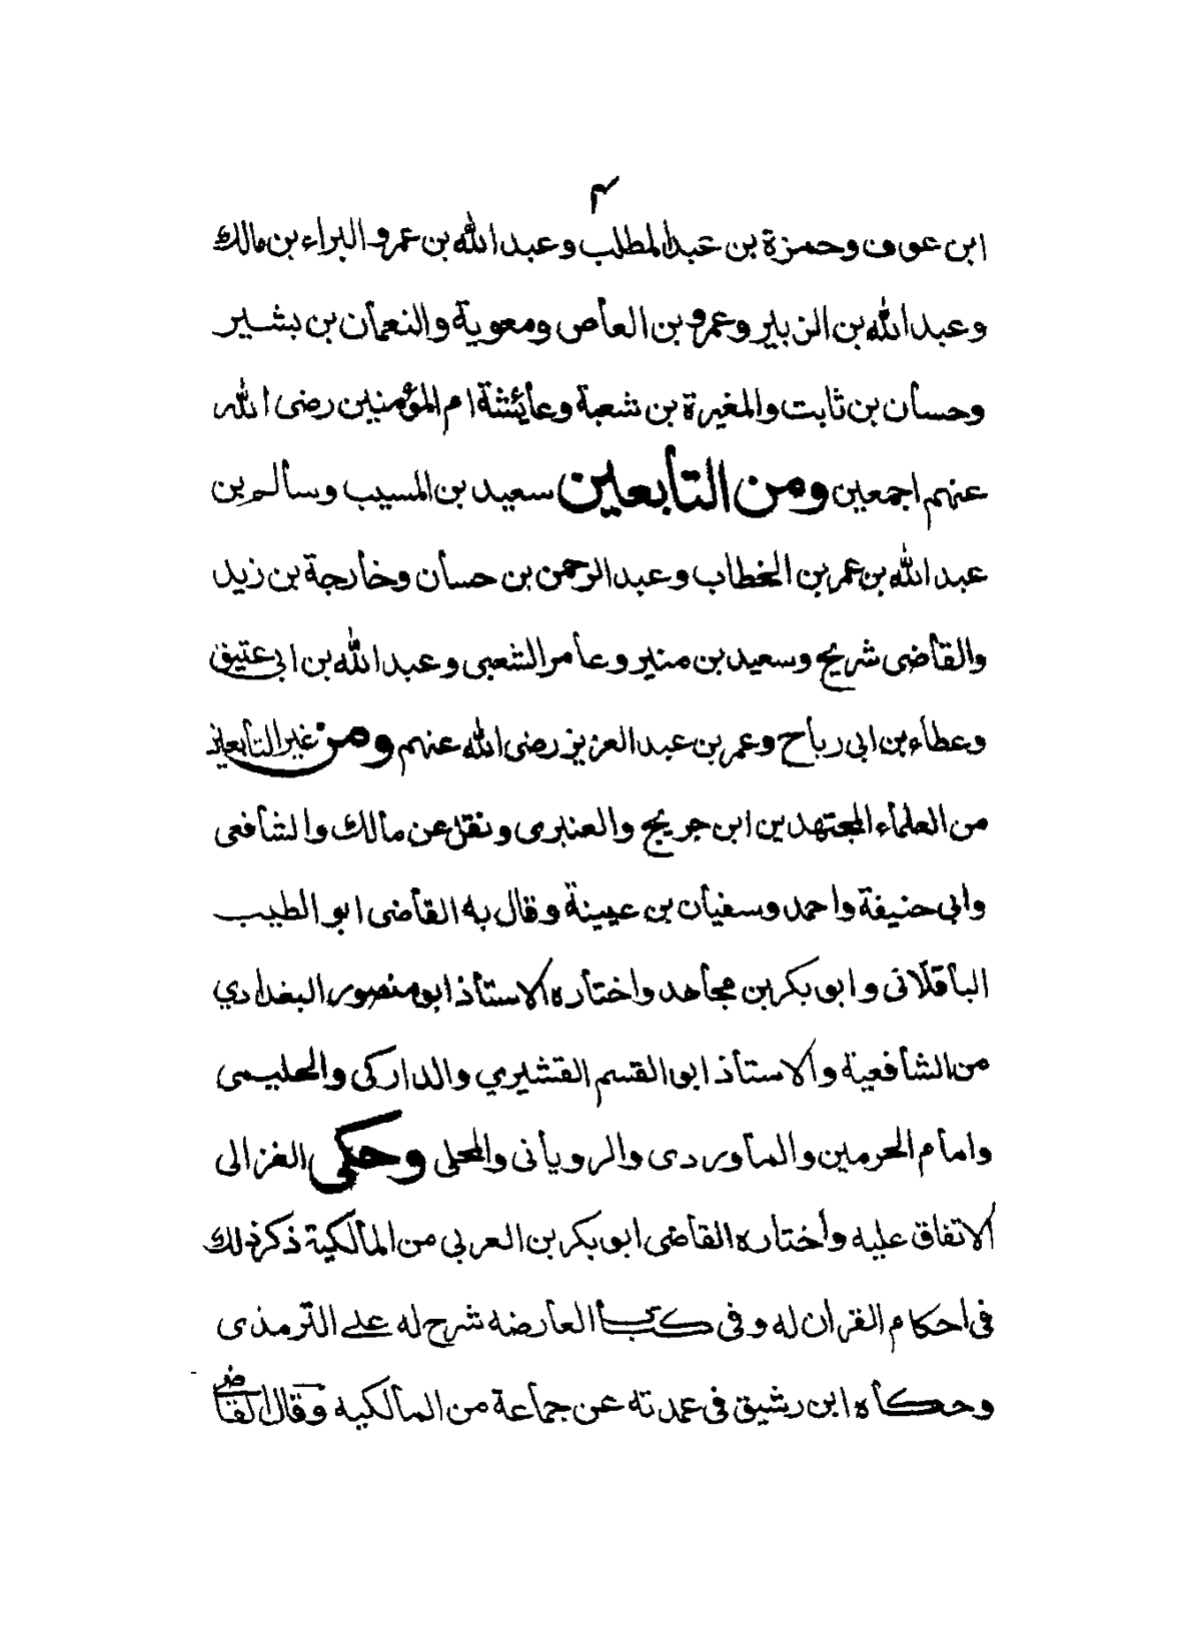 ٣
ابن عوف وحمزة بن عبد المطلب وعبد الله بن عمرو البراء بن مالك
وعبد الله بن الزبير وعمرو بن العاص ومعوية والنعمان بن بشير
وحسان بن ثابت والمغيرة بن شعبة وعائشة ام المؤمنين رضى الله
عنهم اجمعين ومن التابعين سعيد بن المسيب وسالم بن
عبد الله بن عمر بن الخطاب وعبد الرحمن بن حسان وخارجة بن زيد
والقاضى شريح وسعيد بن منير وعامر الشعبى وعبد الله بن ابى عتيق
وعطاء بن ابى رباح وعمر بن عبد العزيز رضى الله عنهم ومن غير التابعين
من العلماء المجتهدين ابن جريج والعنبرى ونقل عن مالك والشافعى
وابى حنيفة واحمد وسفيان بن عيينة وقال به القاضى ابو الطيب
الباقلانى وابو بكر بن مجاهد واختاره الاستاذ ابو منصور البغدادي
من الشافعية والاستاذ ابو القسم القشيري والداركى والحليمى
وامام الحرمين والماوردى والرويانى والمحلى وحكى الغزالى
الاتفاق عليه واختاره القاضى ابو بكر بن العربي من المالكية ذكر ذلك
فى احكام القران له وفى كتاب العارضه شرح له على الترمذى
وحكاه ابن رشيق فى عمدته عن جماعة من المالكيه وقال القاضى